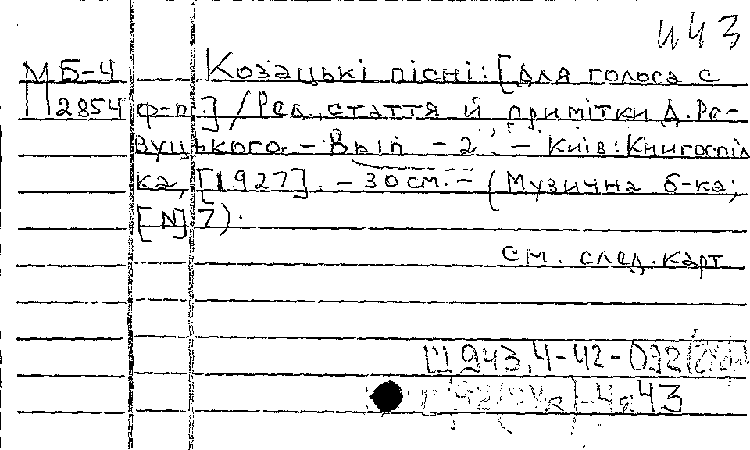 443
МБ-4 Козацькі пісні: [Для голоса с
П2854 ф-п.] / Ред., стаття й примітки Д. Ре-
вуцького. - Вып - 2. - Київ: Книгоспіл
ка, [1927]. - 30 см. - (Музична б-ка;
[N] 7).
см. след. карт
Щ943.4-42-032
43